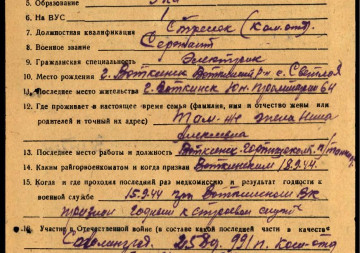 5. Образование
6. На ВУС
7. Должностная квалификация Стрелок (Ком. отд.)
8. Военное звание Сержант
9. Гражданская специальность Электрик
10. Место рождения г. Воткинск Воткинский р-н с.
11. Последнее место жительства г. Воткинск
12. Где проживает в настоящее время семья (фамилия, имя и отчество жены или
родителей и точный их адрес) Там-же жена Нина
Алексеевна
13. Последнее место работы и должность Воткинск
14. Каким райгорвоенкоматом и когда призван Воткинским 18.9.44.
15. Когда и где проходил последний раз медкомиссию и результат годности к
военной службе 15.9.44 при Воткинском ВК
признан годным к строевой службе
16. Участие в Отечественной войне (в составе какой последней части в качеств
Сталинград. 258д. 991 п. Ком-отд